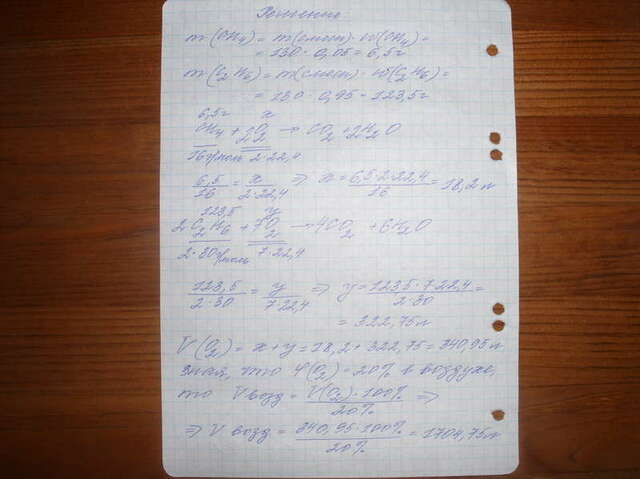 Решение
m(CH₄) = m(смеси)·w(CH₄) =
= 130 · 0,05 = 6,5г
m(C₂H₆) = m(смеси)·w(C₂H₆) =
= 130 · 0,95 = 123,5г
6,5г x
CH₄ + 2O₂ → CO₂ + 2H₂O
16г/моль 2·22,4
6,5/16 = x/2·22,4 ⇒ x = 6,5·2·22,4/16 = 18,2 л
123,5 y
2C₂H₆ + 7O₂ → 4CO₂ + 6H₂O
2·30г/моль 7·22,4
123,5/2·30 = y/7·22,4 ⇒ y = 123,5·7·22,4/2·30 =
= 322,75л
V(O₂) = x + y = 18,2 + 322,75 = 340,95л
зная, что φ(O₂) = 20% в воздухе,
то Vвозд = V(O₂)·100%/20% ⇒
⇒ V возд = 340,95·100%/20% = 1704,75л